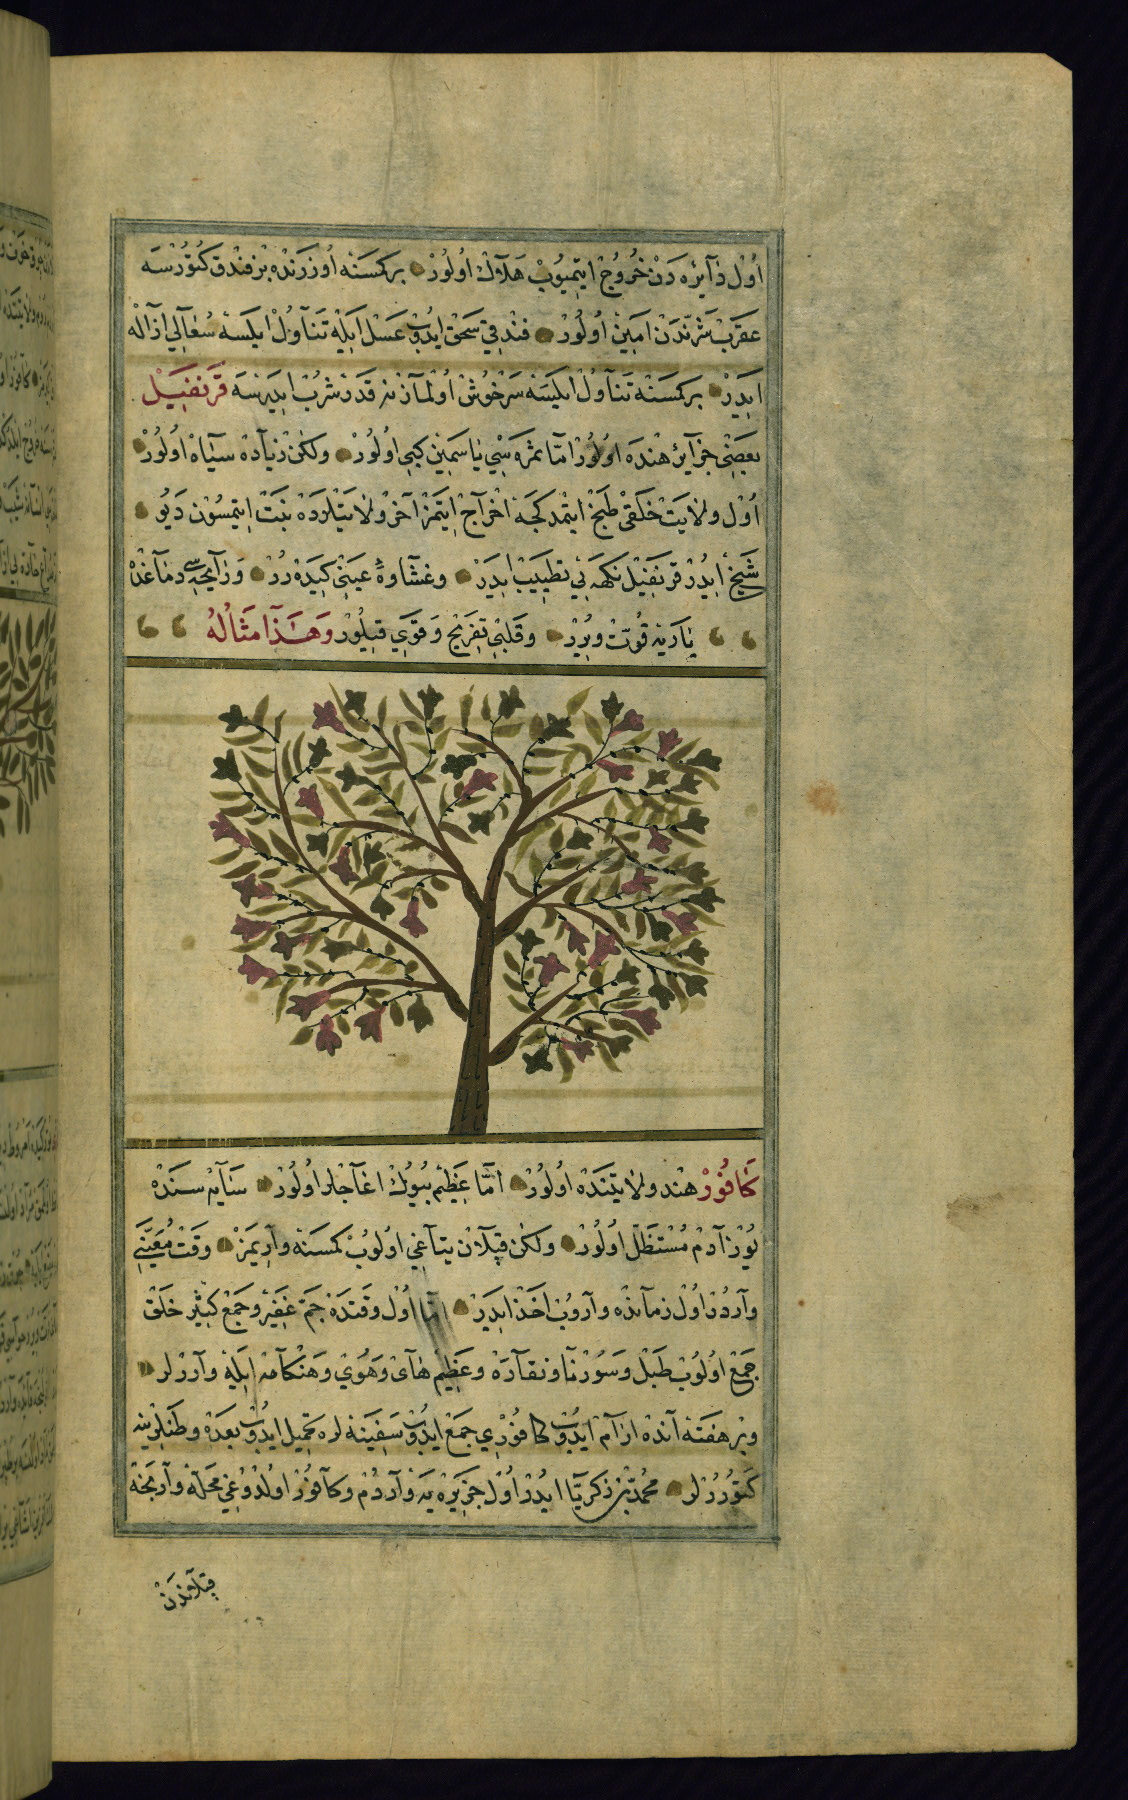 اول دایره دن خروج ایتمیوب هلاك اولور بركمسنه اوزرنده بر فندق كتورسه
عقرب شرندن امین اولور فندقی سحق ایدوب عسل ایله تناول ایلسه سعالی ازاله
ایدر بركمسنه تناول ایلسه سرخوش اولماز نه قدر شرب ایدرسه قرنفیل
بعضی جزایر هندده اولور اما ثمره سی یاسمین كبی اولور ولكن زیاده سیاه اولور
اول ولایت خلقی طبخ ایتمدكجه اخراج ایتمز آخر ولایتلرده نبت ایتمسون دیو
شیخ ایدر قرنفیل نكهه یی تطییب ایدر وغشاوه عینی كیده رر ورایحه سی دماغنه
یارینه قوت ویرر وقلبی تفریح وقوی قیلور وهذا مثاله
كافور هند ولایتنده اولور اما عظیم بیوك اغاجلر اولور سایه سنده
یوز آدم مستظل اولور ولكن قپلان یتاغی اولوب كمسنه واریمز وقت معینی
واردر اول زمانده واروب اخذ ایدر اما اول وقتده جم غفیر وجمع كثیر خلق
جمع اولوب طبل وسورنا ونقاره وعظیم های وهوی وهنكامه ایله واررلر
وبر هفته آنده ارام ایدوب كافوری جمع ایدوب سفینه لره تحمیل ایدوب بعده وطنلرینه
كتوررلر محمد بن زكریا ایدر اول جزیره یه واردم وكافور اولدوغی محله وارنجه
قپلاندن